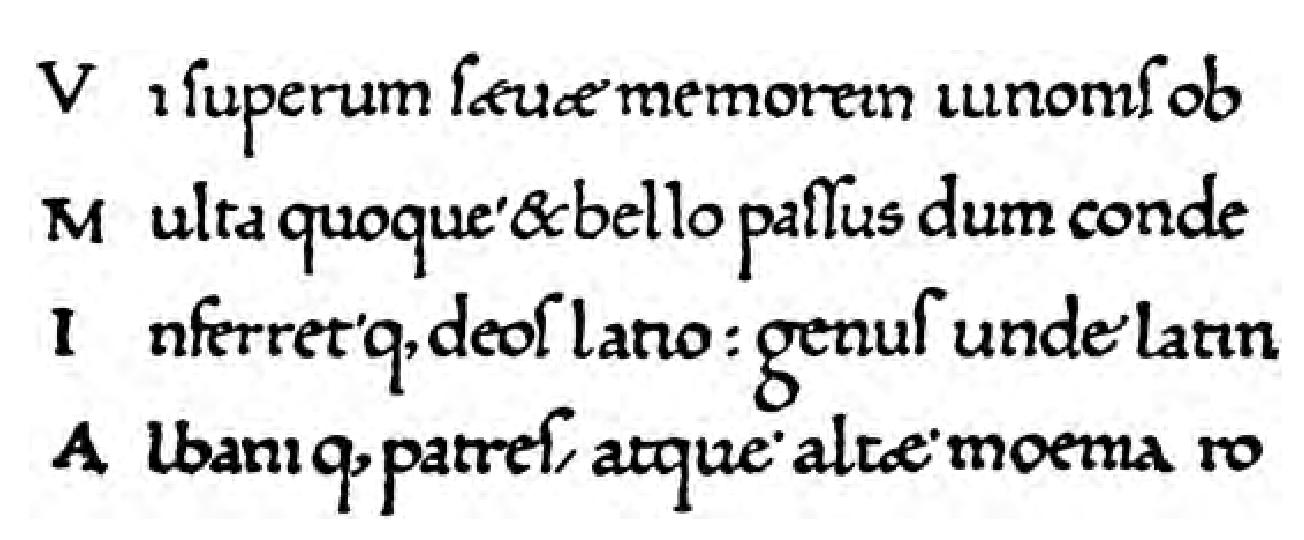 V i ſuperum ſæuæ memorem iunoniſ ob
M ulta quoque & bello paſſus dum conde
I nferret q, deoſ latio : genuſ unde latin
A lbani q, patreſ, atque altæ moenia ro